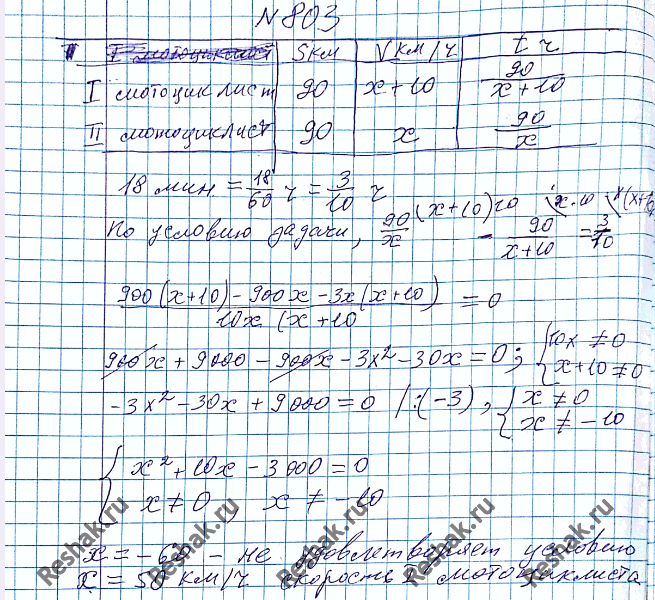 N 803
S км V км/ч t ч
I мотоциклист 90 x+10 90/(x+10)
II мотоциклист 90 x 90/x
18 мин = 18/60 ч = 3/10 ч
По условию задачи, 90/x (x+10)10 - 90/(x+10) x·10 = 3/10
(900(x+10) - 900x - 3x(x+10))/(10x(x+10) = 0
900x + 9000 - 900x - 3x² - 30x = 0; { 10x ≠ 0
x+10 ≠ 0
-3x² - 30x + 9000 = 0 /:(-3), { x ≠ 0
x ≠ -10
{ x² + 10x - 3000 = 0
x ≠ 0, x ≠ -10
x = -60 - не удовлетворяет условию
x = 50 км/ч скорость II мотоциклиста
Reshak.ru Reshak.ru Reshak.ru Reshak.ru